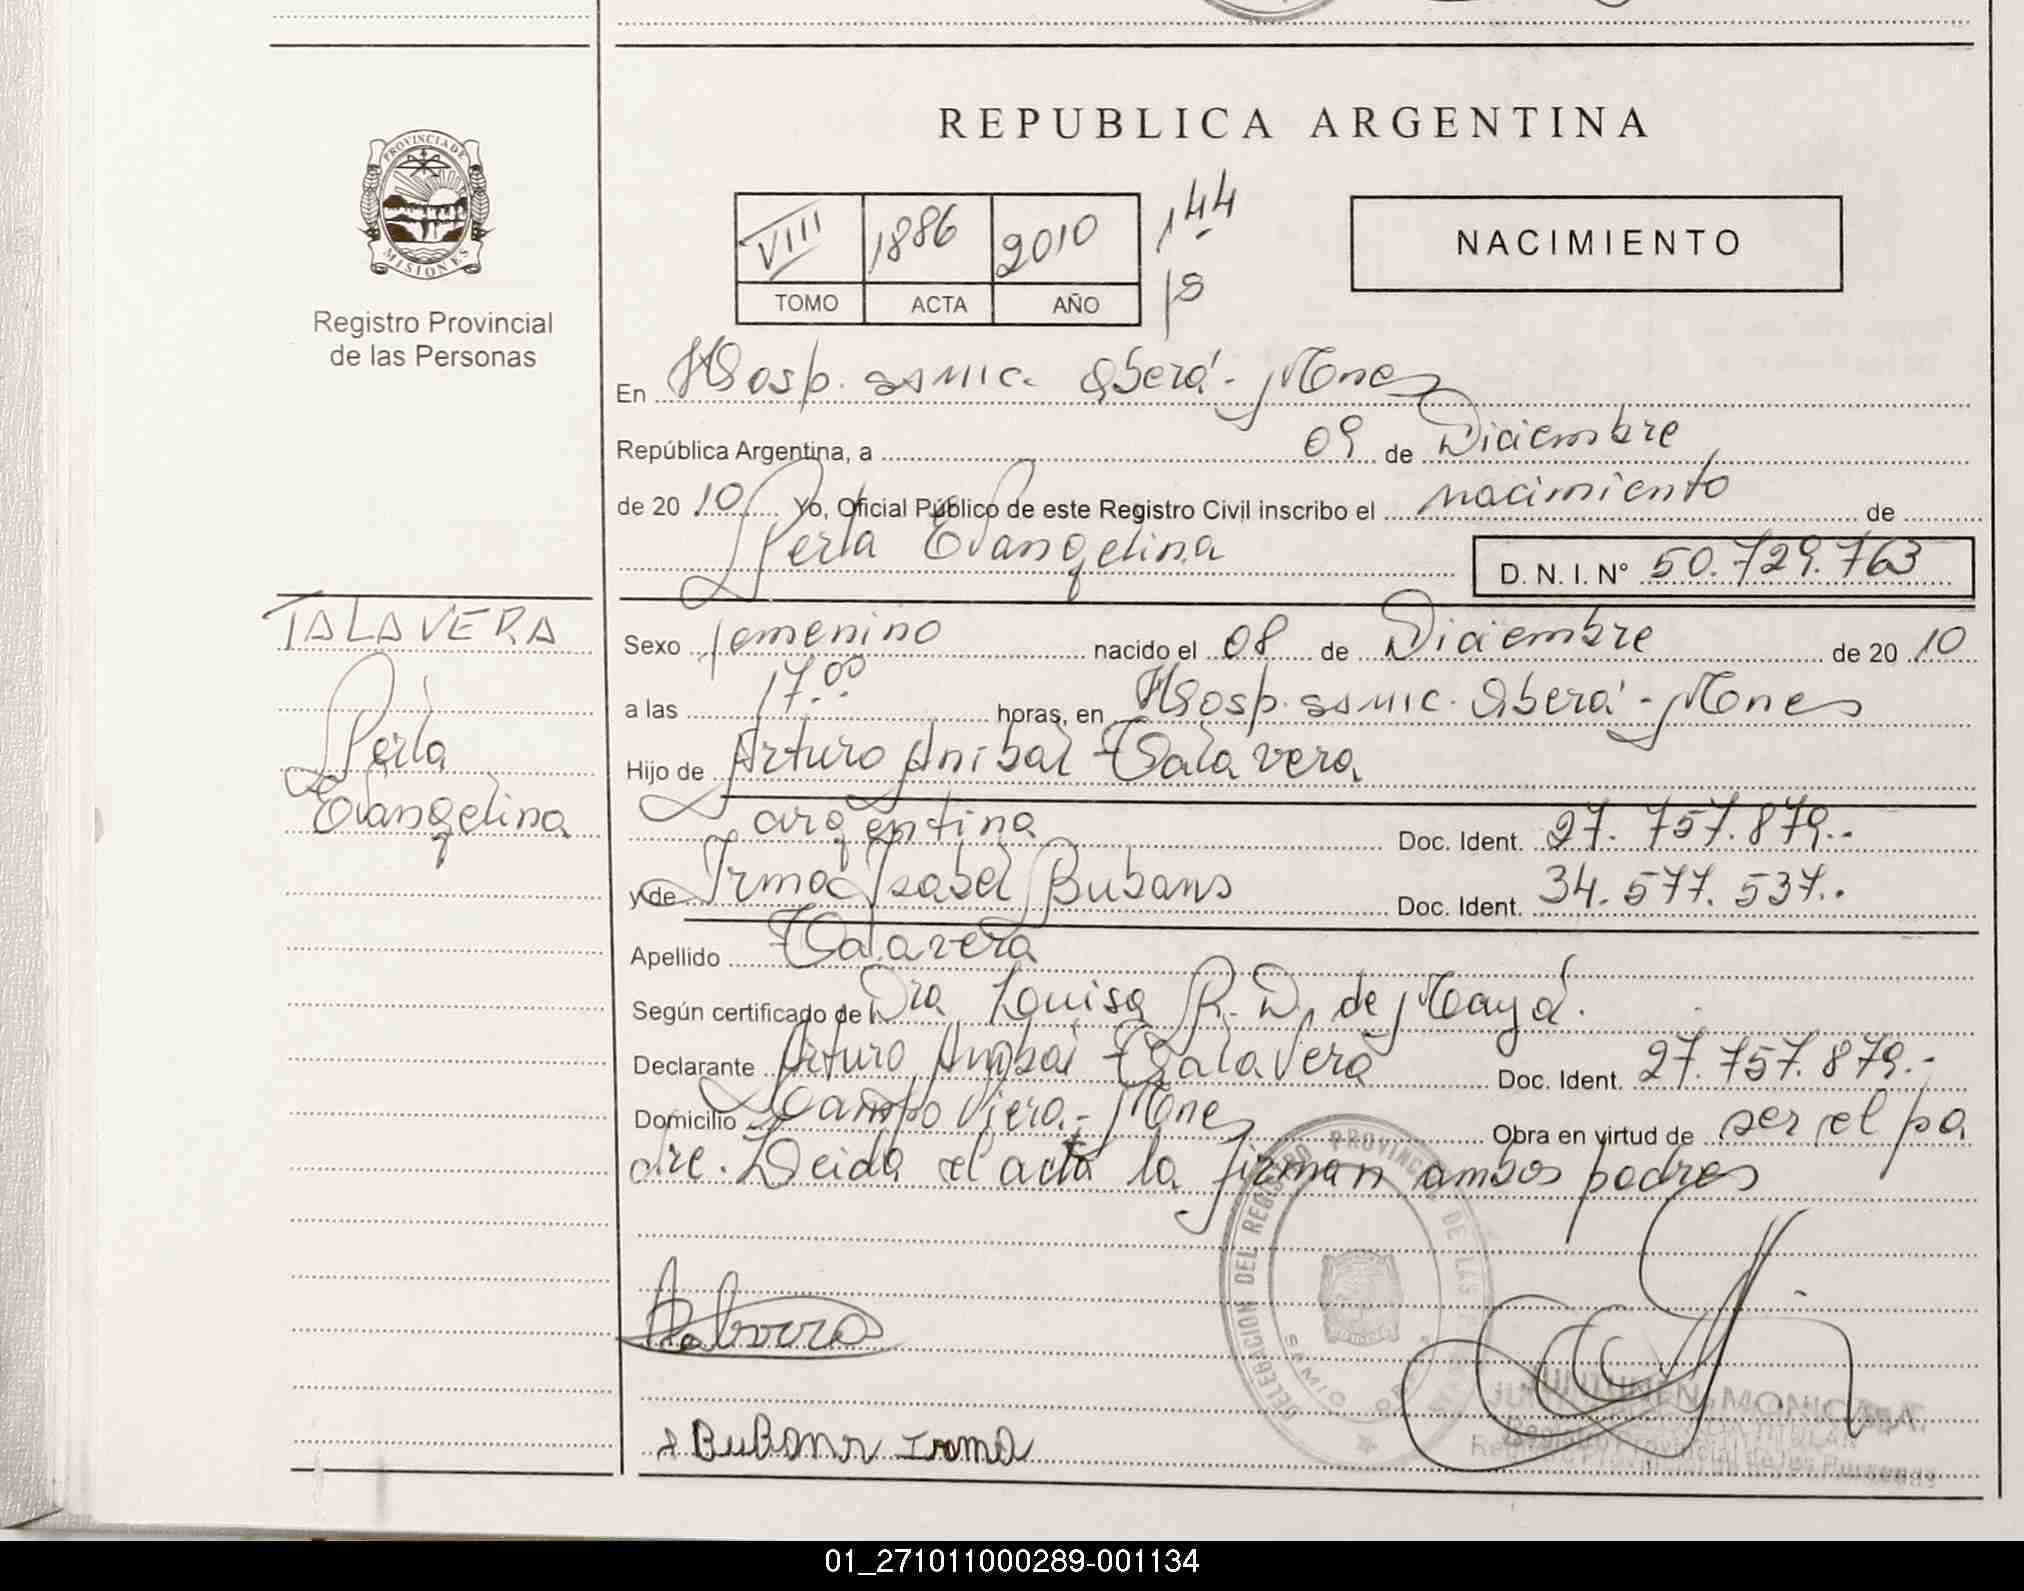 REPUBLICA ARGENTINA
PROVINCIA DE
MISIONES
Registro Provincial
de las Personas
VIII 1886 2010 144
TOMO ACTA AÑO
NACIMIENTO
En Hosp. SAMIC. Oberá - Mnes
República Argentina, a 09 de Diciembre
de 20 10 Yo, Oficial Público de este Registro Civil inscribo el nacimiento de
Perla Evangelina D. N. I. N° 50.729.763
TALAVERA
Perla
Evangelina
Sexo femenino nacido el 08 de Diciembre de 20 10
a las 17.00 horas, en Hosp. SAMIC. Oberá - Mnes
Hijo de Arturo Anibal Talavera
argentina Doc. Ident. 27.757.879.-
y de Irma Isabel Bubans Doc. Ident. 34.577.537.-
Apellido Talavera
Según certificado de Dra Louisa R. D. de Mayá.
Declarante Arturo Anibal Talavera Doc. Ident. 27.757.879.-
Domicilio Campo Viera - Mnes Obra en virtud de ser el pa
dre. Leida el acta la firman ambos padres
DELEGACION DEL REGISTRO PROVINCIAL DE LAS
Talavera
Irma
MONICA
Registro Provincial de las Personas
01_271011000289-001134